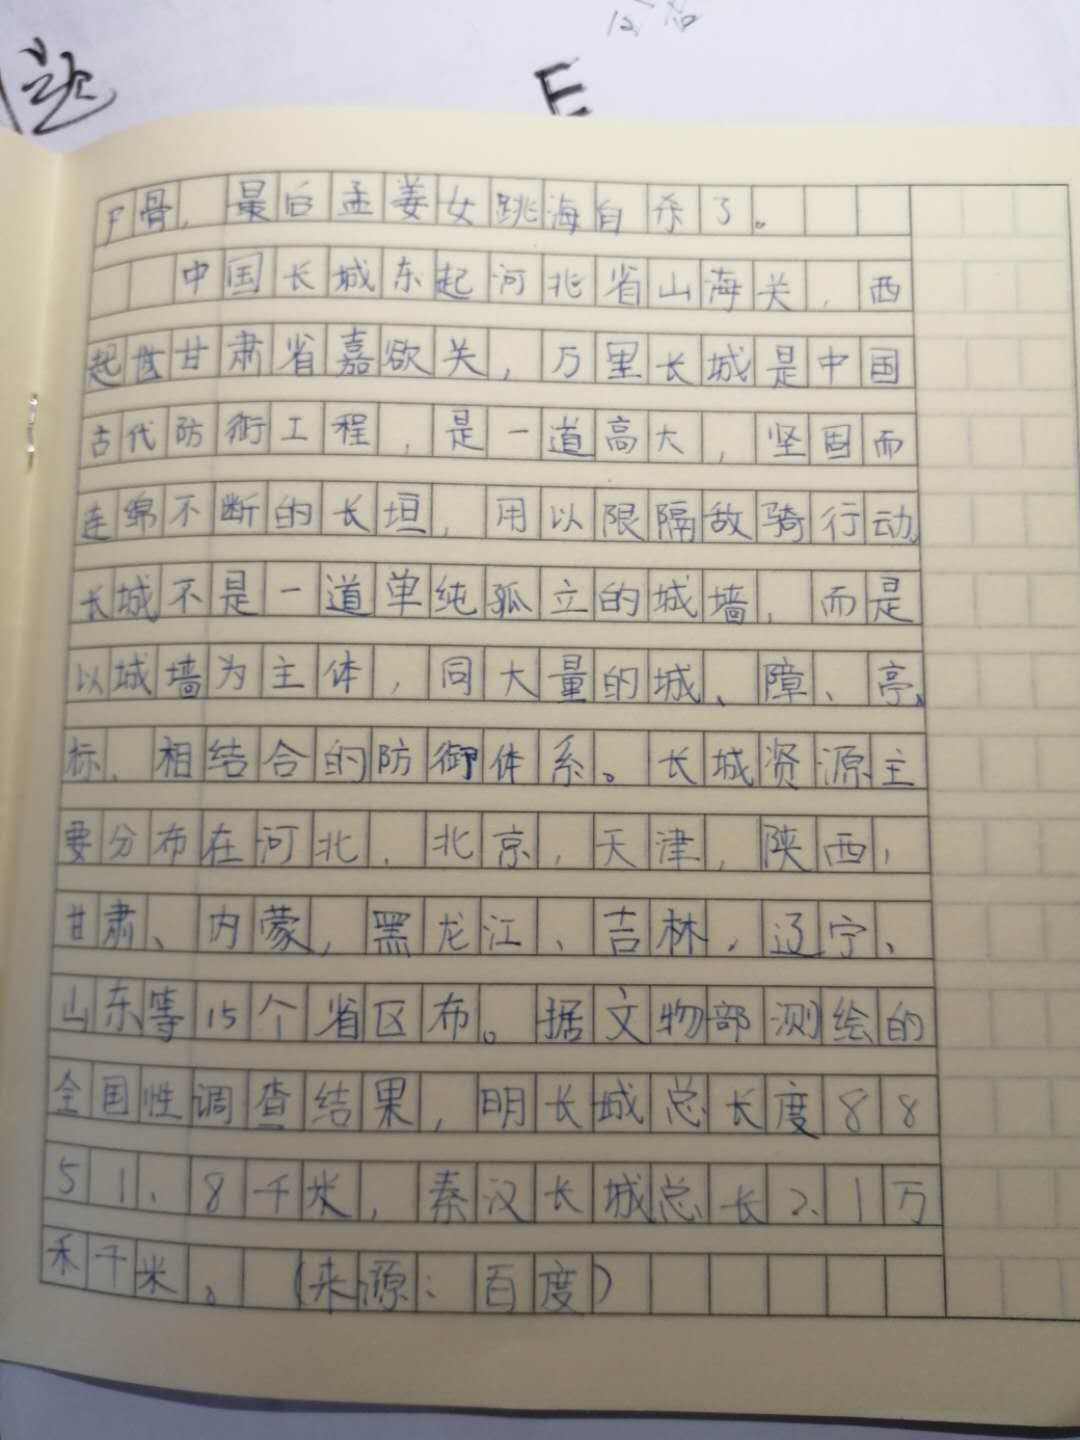 题
E
尸骨，最后孟姜女跳海自杀了。
中国长城东起河北省山海关，西
起世甘肃省嘉欲关，万里长城是中国
古代防衔工程，是一道高大，坚固而
连绵不断的长垣，用以限隔敌骑行动。
长城不是一道单纯孤立的城墙，而是
以城墙为主体，同大量的城、障、亭、
标、相结合的防御体系。长城资源主
要分布在河北、北京，天津，陕西，
甘肃、内蒙，黑龙江、吉林，辽宁、
山东等15个省区布。据文物部测绘的
全国性调查结果，明长城总长度88
51.8千米，秦汉长城总长2.1万
禾千米。（来源：百度）